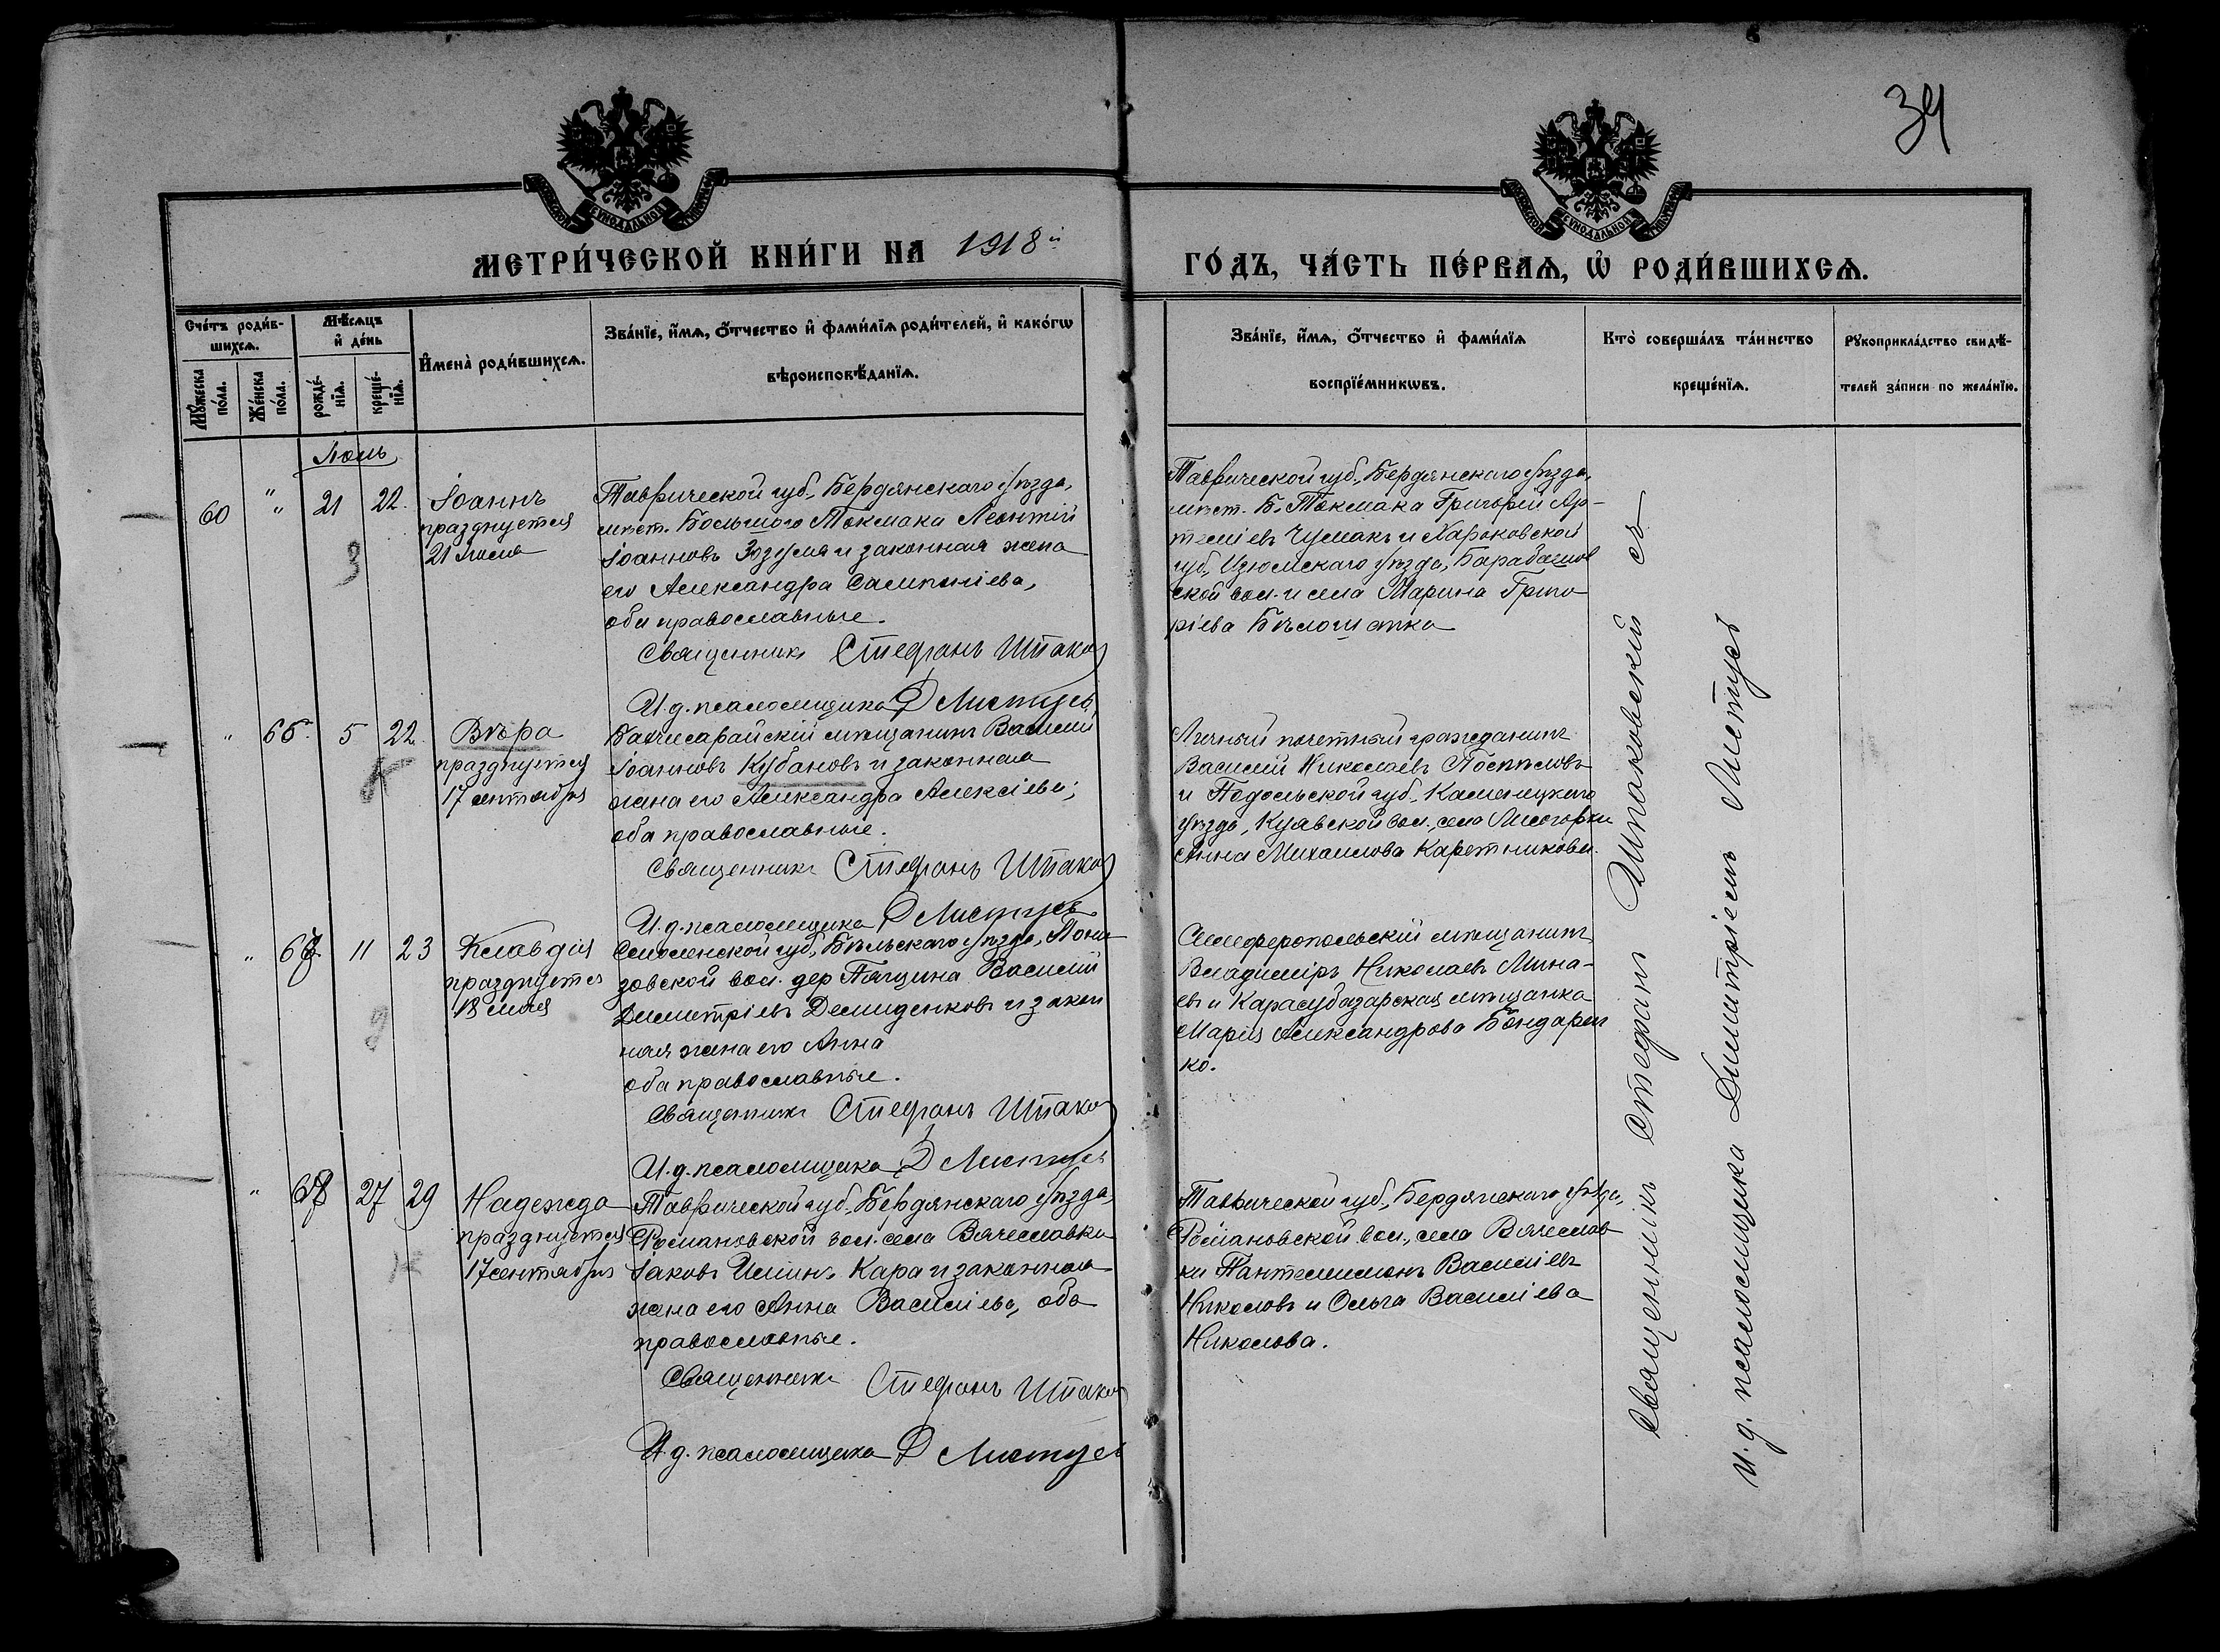 34
МЕТРИ́ЧЕСКОЙ КНИ́ГИ НА 1918й
ГО́ДЪ, ЧА́СТЬ ПЕ́РВАЯ, Ѽ РОДИ́ВШИХСЯ.
Сче́тъ роди́в-
шихся.
Мѣ́сяцъ
и҆ де́нь
Мꙋ́жеска
по́ла.
Же́нска
по́ла.
рожде́-
нїя.
креще́-
нїя.
И҆мена̀ роди́вшихся.
Зва́нїе, и҆́мя, ѻ҆́тчество и҆ фами́лїя роди́телей, и҆ како́гѡ
вѣроисповѣ́данїя.
Зва́нїе, и҆́мя, ѻ҆́тчество и҆ фами́лїя
воспрїе́мникѡвъ.
Кто̀ соверша́лъ та́инство
креще́нїя.
Рꙋкоприкла́дство свидѣ́-
телей за́писи по жела́нїю.
Іюль
60 " 21 22. Іоаннъ
празднуется
21 іюля
Таврической губ., Бердянскаго уѣзда,
мѣст. Большого Токмака Леонтій
Іоанновъ Зозуля и законная жена
его Александра Сампсоніева,
оба православные.
Священникъ Стефанъ Шпаков
И.д. псаломщика Д Листусъ
Таврической губ., Бердянскаго уѣзда,
мѣст. Б. Токмака Григорій Ар-
теміевъ Чумакъ и Харьковской
губ., Изюмскаго уѣзда, Барабашов
ской вол. и села Марина Григо
ріева Бѣлошапка
" 66 5 22. Вѣра
празднуется
17 сентября
Бахчисарайскій мѣщанинъ Василій
Іоанновъ Кубановъ и законная
жена его Александра Алексіева;
оба православные.
Священникъ Стефанъ Шпаков
И.д. псаломщика Д Листусъ
Личный почетный гражданинъ
Василій Николаевъ Поспѣловъ
и Подольской губ., Каменецкаго
уѣзда, Куявской вол., села Лисогорки
Анна Михаилова Каретникова.
" 67 11 23 Клавдія
празднуется
18 мая
Смоленской губ., Бѣльскаго уѣзда, Пони
зовской вол. дер Пащина Василій
Димитріевъ Демиденковъ и закон
ная жена его Анна
оба православные.
Священникъ Стефанъ Шпаков
И.д. псаломщика Д Листусъ
Симферопольскій мѣщанинъ
Владиміръ Николаевъ Мина-
евъ и Карасубазарская мѣщанка
Марія Александрова Бондарен
ко.
" 68 27 29 Надежда
празднуется
17 сентября
Таврической губ., Бердянскаго уѣзда,
Романовской вол. села Вячеславки
Іаковъ Иліинъ Кара и законная
жена его Анна Василіева, оба
православные.
Священникъ Стефанъ Шпаков
И.д. псаломщика Д Листусъ
Таврической губ., Бердянскаго уѣзда,
Романовской вол., села Вячеслав
ки Пантелимонъ Василіевъ
Николовъ и Ольга Василіева
Николова.
Священникъ Стефанъ Шпаковскій съ
И.д. псаломщика Димитріемъ Листусъ